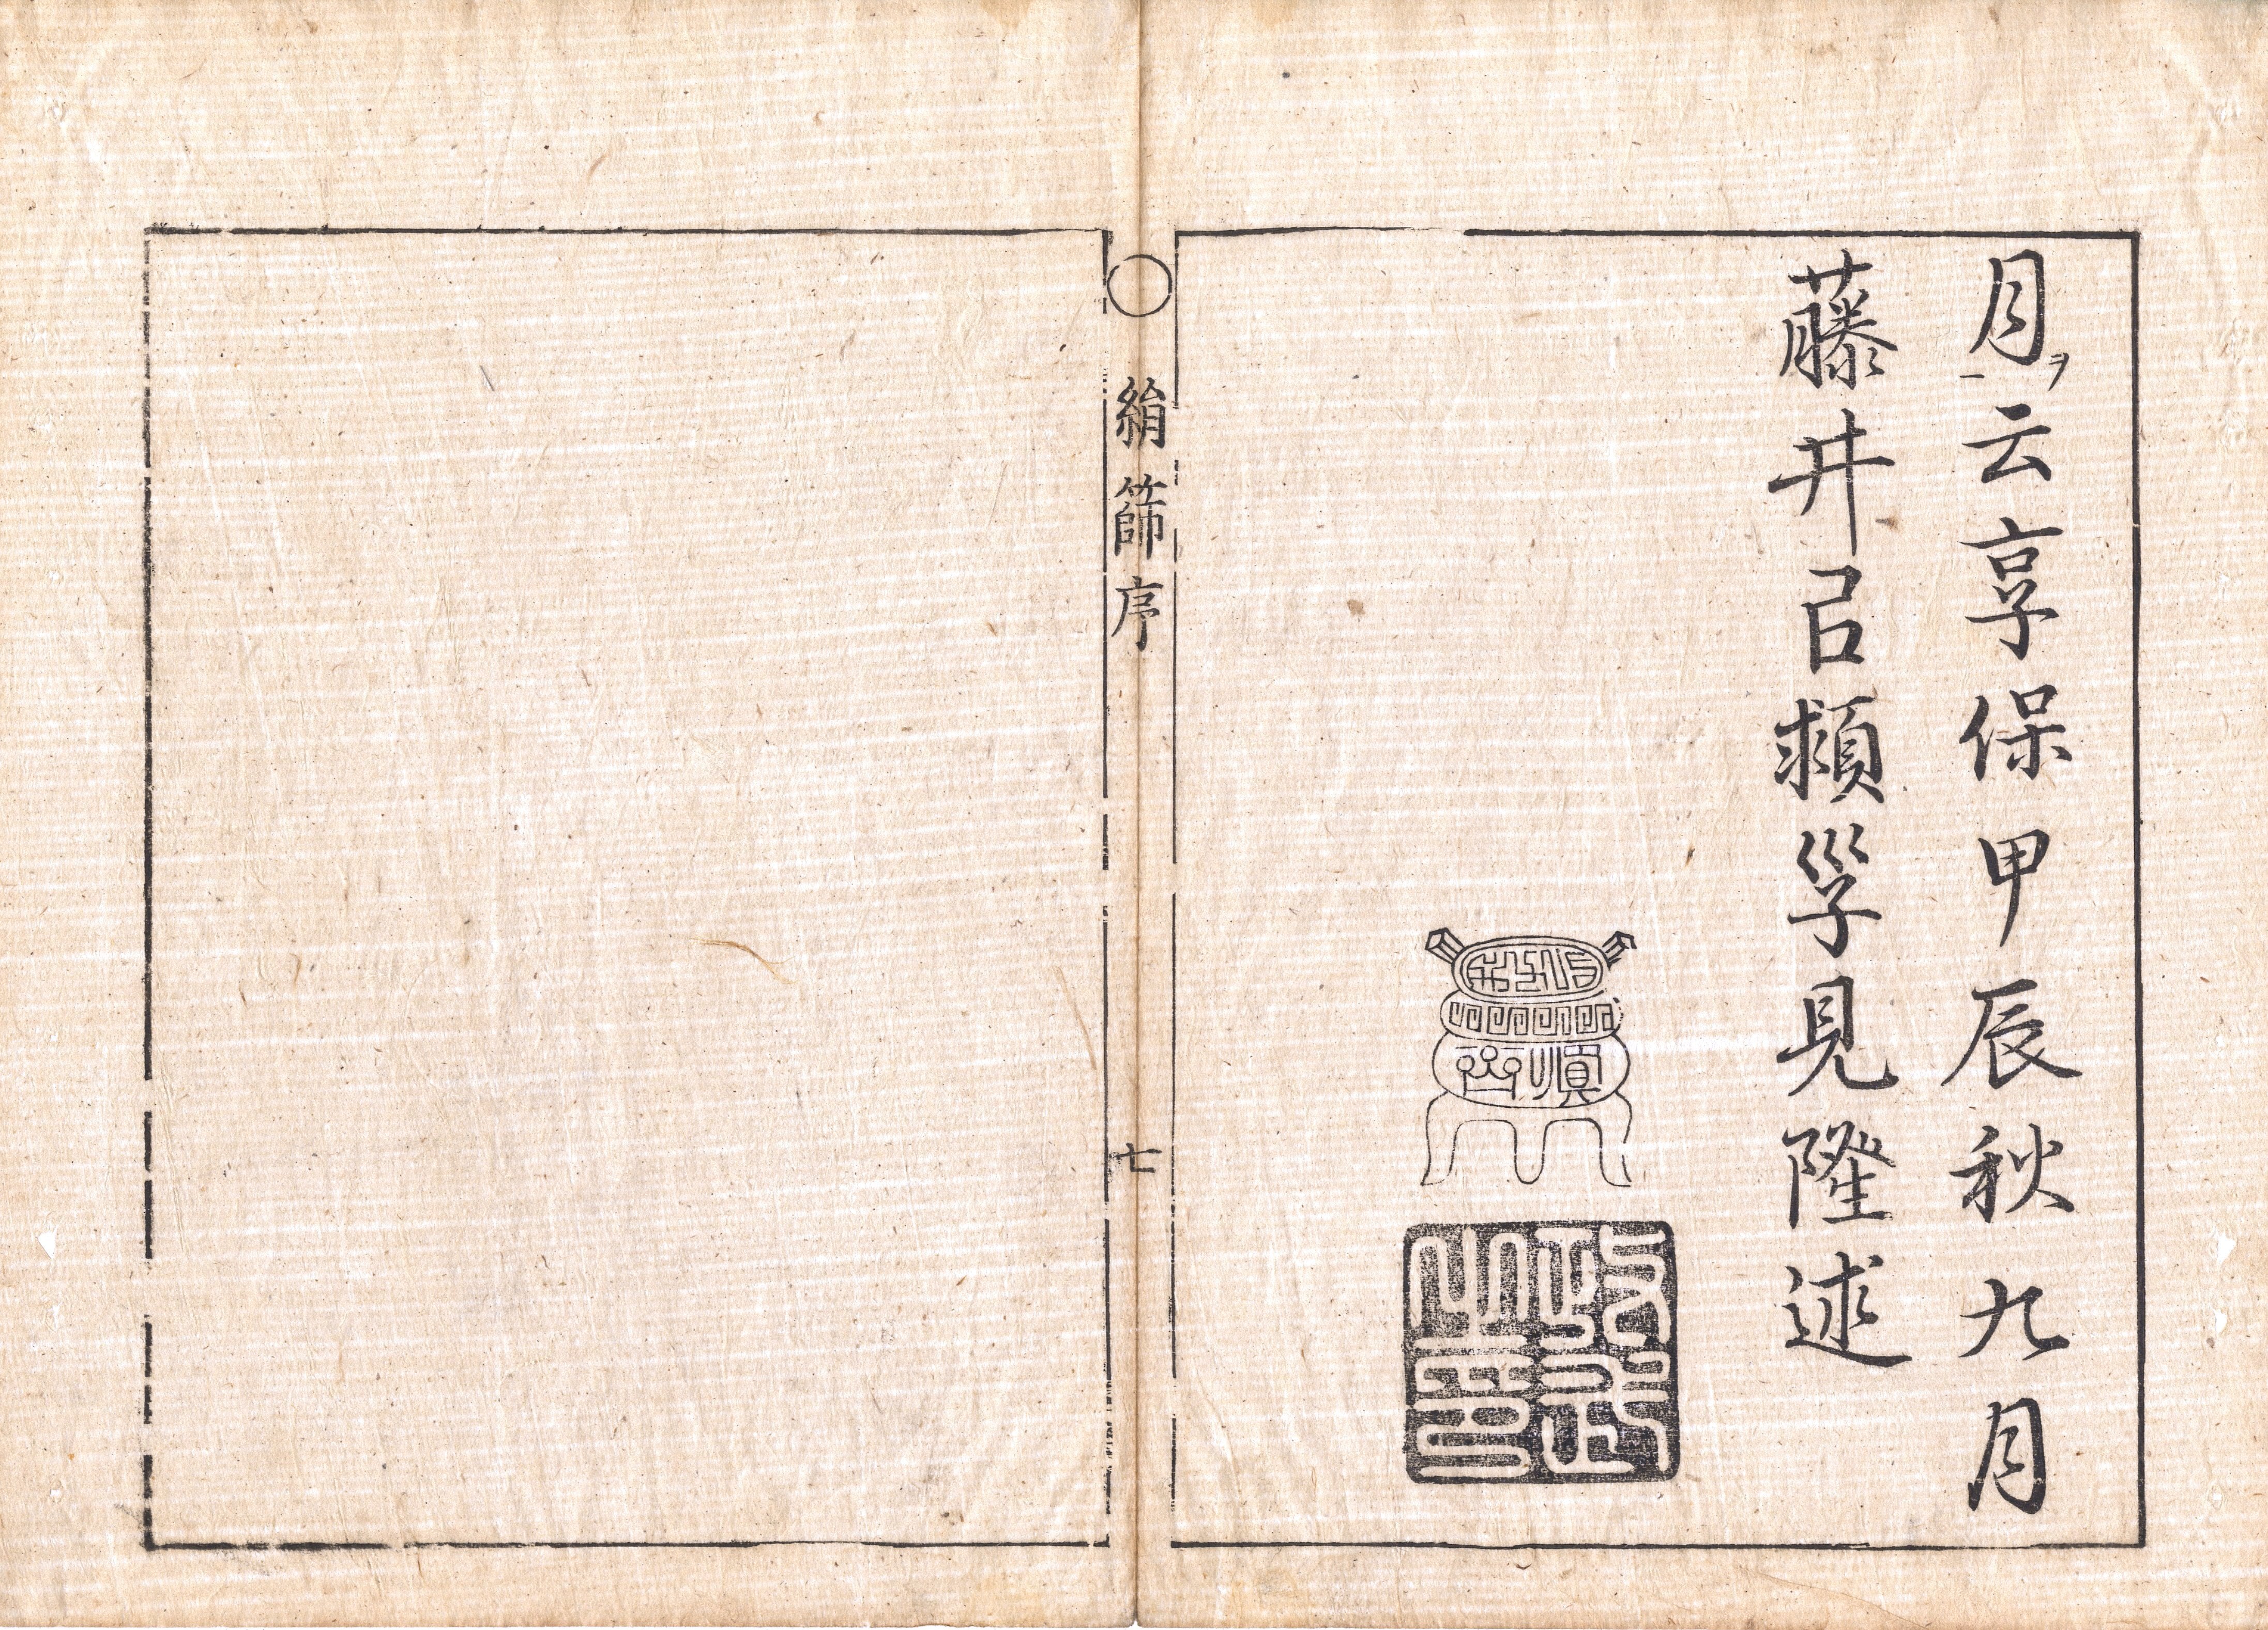 月ヲ一云享保甲辰秋九月
藤井見隆述
順齊
絹篩序
七